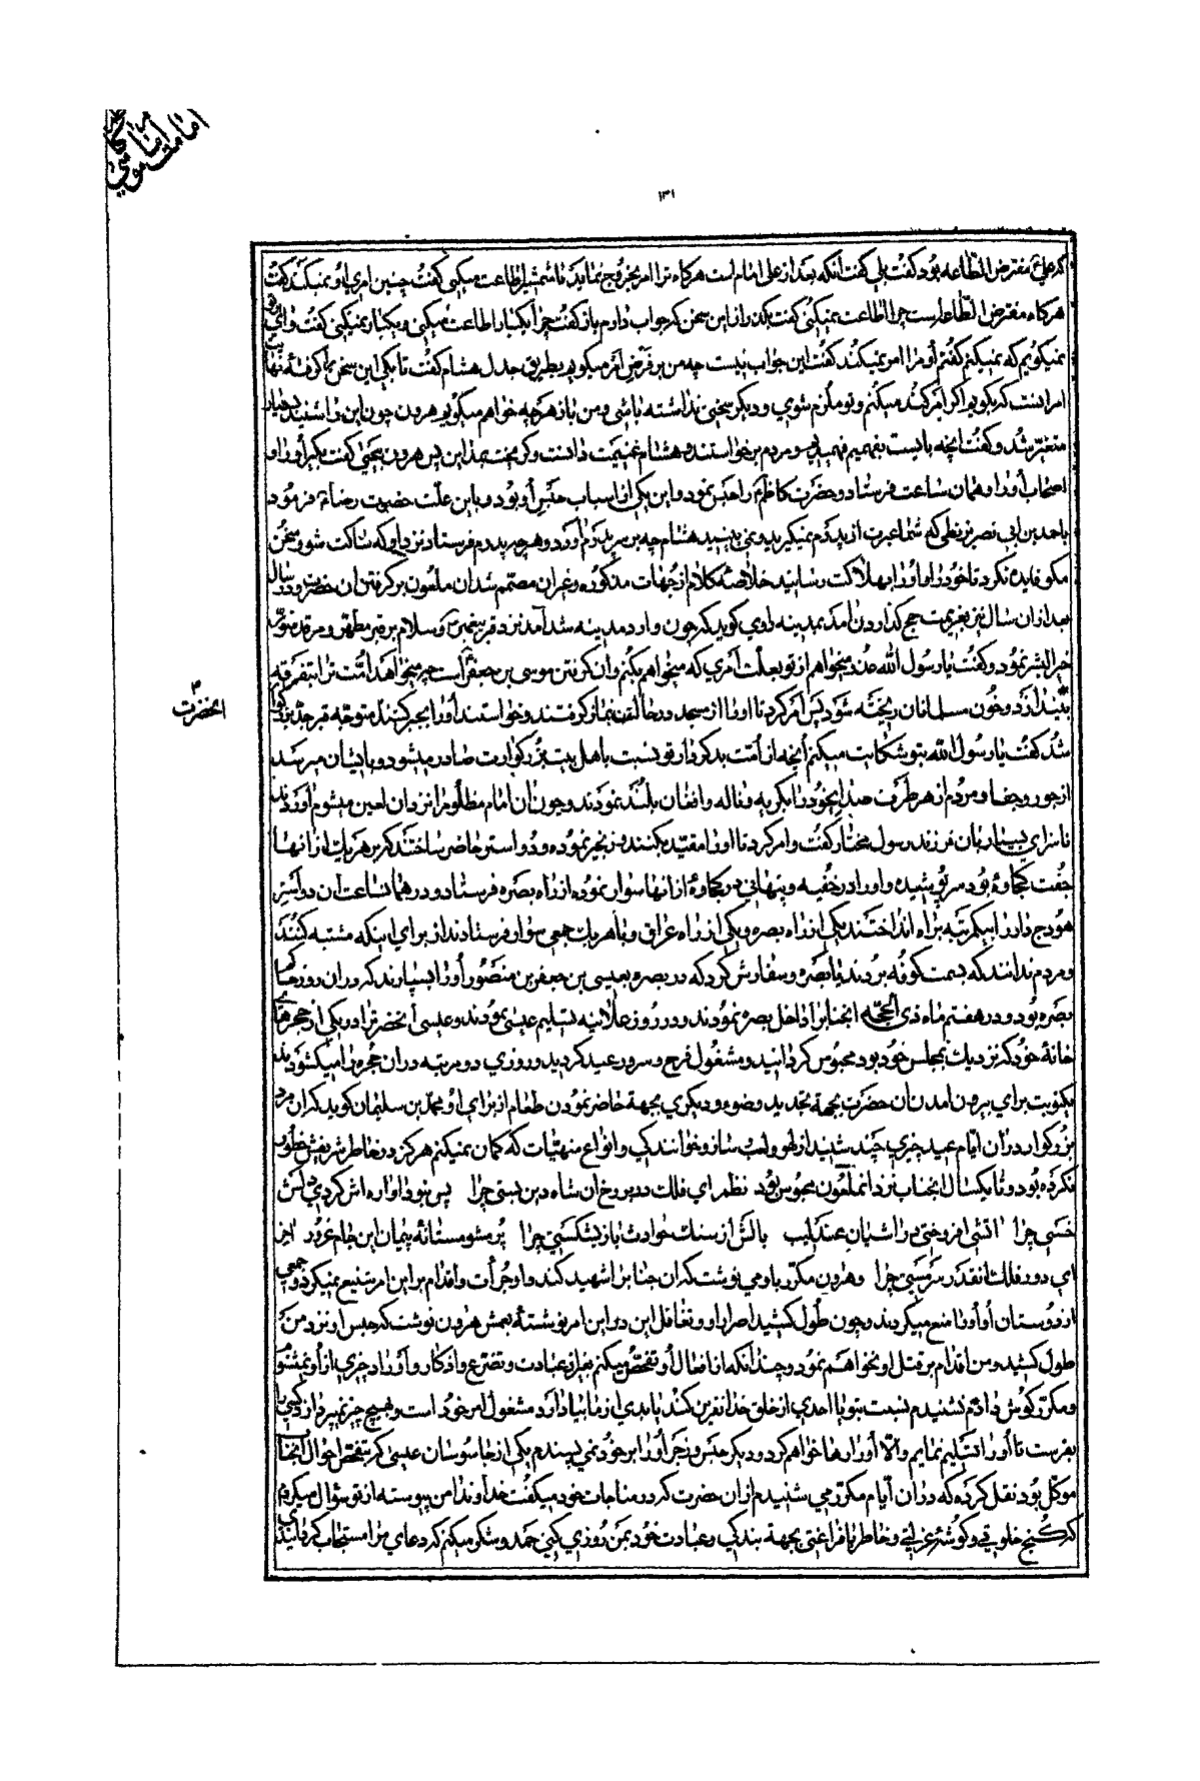 ۱۳۱
که علی مفترض الطاعه بود گفت بلی گفت آنکه بعد از علی امام است هرگاه ترا امر بخروج نماید تا شمشیر اطاعت میکنی گفت چنین امری او نمیکند گفت
هرگاه مفترض الطاعه است چرا اطاعت نمیکنی گفت بگذر از این سخن که جواب دادم باز گفت چرا یکبار اطاعت میکنی و یکبار نمیکنی گفت وای
نمیگویم که نمیکنم گفتم او مرا امر نمیکند گفت این جواب نیست چه من بر فرض امر میگویم بطریق جدل هشام گفت تا بکی این سخن نهایت
امر اینست که بگویم اگر امر کند میکنم و تو ملزم شوی و دیگر سخنی نداشته باشی و من باز هرچه خواهم میگویم هرون چون این را شنید بسیار
متغیر شد و گفت آنچه بایست بفهمیم فهمیدیم و مردم برخواستند و هشام غنیمت دانست و گریخت بعد از این پس هرون بیحیی گفت بگیر او را و
اصحاب او را و همان ساعت فرستاد و حضرت کاظم را حبس نمود و این یکی از اسباب حبس او بود و باین علت حضرت رضا فرمود
باحمد بن ابی نصر بزنطی که شما عبرت از پدرم نمیگیرید و نمی بینید هشام چه بر سر پدرم آورد و هرچه پدرم فرستاد نزد او که ساکت شو و سخن
مگو فایده نکرد تا خود را و او را بهلاکت رسانید خلاصه کلام از جهات مذکوره و غیر آن مصمم شد آن ملعون بر گرفتن آن حضرت و در سال
بعد از آن سال نیز بعزیمت حج گذاردن آمد بمدینه راوی گوید که چون وارد مدینه شد آمد نزد قبر پیغمبر و سلام بر قبر مطهر و مرقد منور
خیر البشر نمود و گفت یا رسول الله عذر میخواهم از تو بعلت امری که میخواهم بکنم و آن گرفتن موسی بن جعفر است چه میخواهد امت ترا بتفرقه
بیندازد و خون مسلمانان ریخته شود پس امر کرد تا او را از مسجد در حالت نماز گرفتند و خواستند او را بجبر کشند متوجه قبر جد بزرگوار
شد گفت یا رسول الله بتو شکایت میکنم آنچه از امت بدکردار تو نسبت باهل بیت بزرگوارت صادر میشود و بایشان میرسد
از جور و جفا و مردم از هر طرف صدای خود را بگریه و ناله و افغان بلند نمودند و چون آن امام مظلوم را نزد آن لعین میشوم آوردند
ناسزای بسیار بآن فرزند رسول مختار گفت و امر کرد تا او را مقید بکند و زنجیر نموده و دو استر حاضر ساختند که بر هر یک از آنها
جفت کجاوه بود سرپوشیده و او را در خفیه و پنهانی در کجاوه از آنها سوار نموده از راه بصره فرستاد و در همان ساعت آن دو استر
هودج دار را بیکمرتبه براه انداختند یکی از راه بصره و یکی از راه عراق و با هر یک جمعی سوار فرستادند از برای اینکه مشتبه کنند
و مردم ندانند که بسمت کوفه بردند یا بصره و سفارش کرد که در بصره بعیسی بن جعفر بن منصور او را بسپارند که در آن روز حاکم
بصره بود و در هفتم ماه ذی الحجه آنجناب را داخل بصره نمودند و در روز علانیه تسلیم عیسی نمودند و عیسی آنحضرت را در یکی از حجرهای
خانهٔ خود که نزدیک بمجلس خود بود محبوس گردانید و مشغول فرح و سرور عید گردید و روزی دو مرتبه در آن حجره را میگشودند
یکنوبت برای بیرون آمدن آن حضرت بجهة تجدید وضوء و دیگری بجهة حاضر نمودن طعام از برای او محمد بن سلیمان گوید که آن مرد
بزرگوار در آن ایام عید چیزی چند شنید از لهو و لعب و ساز و خوانندگی و انواع منهیات که گمان نمیکنم هرگز در خاطر شریفش خطور
نکرده بود و تا یکسال آنجناب نزد آن ملعون محبوس بود نظم ای فلک دد بروخ آن شاه دین بستی چرا پس نبود آواره اش کردی دلش
خستی چرا آتش افروختی در آشیان عندلیب بالش از سنک حوادث باز بشکستی چرا پر مشو مستانه پیمان این جام غرور آخر
ای دور فلک اینقدر بدمستی چرا و هرون مکرر باو می نوشت که آن جناب را شهید کند و او جرأت و اقدام بر این امر شنیع نمیکرد و جمعی
از دوستان او او را منع میکردند و چون طول کشید اصرار او و تغافل این در این امر نوشتهٔ بعمش هرون نوشت که حبس او نزد من
طول کشید و من اقدام بر قتل او نخواهم نمود و چندانکه از افعال او تفحص میکنم بغیر از عبادت و تضرع و اذکار و اوراد چیزی از او نمیشنوم
و مکرر گوش دادم نشنیدم نسبت بتو یا احدی از خلق خدا نفرین کند یا بدی از زما بیاد آرد مشغول امر خود است و بهیچ چیز نمیپردازد کسی را
بفرست تا او را تسلیم نمایم والا او را رها خواهم کرد و دیگر حبس و زجر او را بر خود نمی پسندم یکی از جاسوسان عیسی که بتفحص احوال آنجناب
موکل بود نقل کرده که در آن ایام مکرر می شنیدم از آن حضرت که در مناجات خود میگفت خداوندا من پیوسته از تو سؤال میکردم
که کنج خلوتی و گوشه عزلتی و خاطر با فراغتی بجهة بندگی و عبادت خود بمن روزی کنی حمد و شکر میکنم که دعای مرا مستجاب گردانیدی
آنحضرت